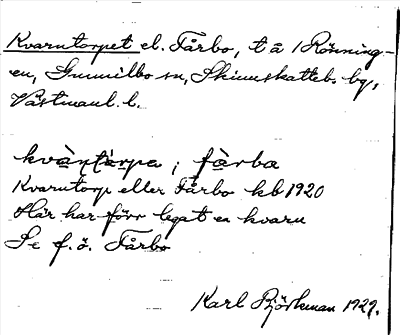 Kvarntorpet el. Fårbo, t å /Rönning-
en, Gunnilbo sn, Skinnskatteb. bg,
Västmanl. l.
kvàṇtàrpa ; fàrba
Kvarntorp eller Fårbo kb 1920
Här har förr legat en kvarn
Se f.ö. Fårbo
Karl Björkman 1929.